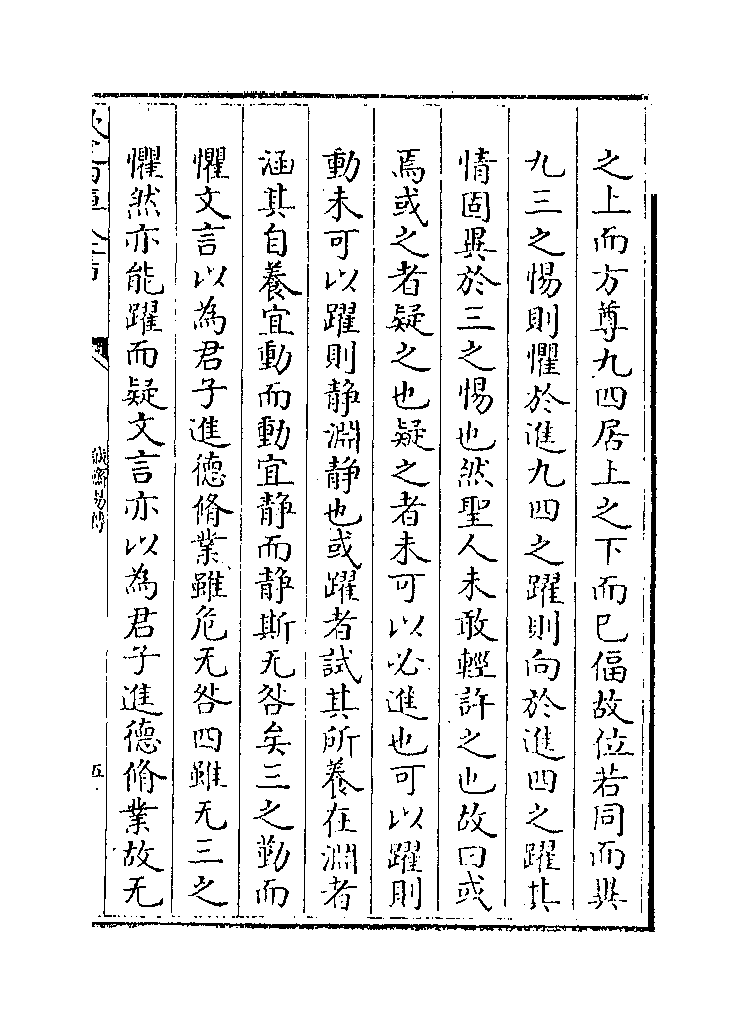 之上而方尊九四居上之下而已偪故位若同而異
九三之惕則懼於進九四之躍則向於進四之躍其
情固異於三之惕也然聖人未敢輕許之也故曰或
焉或之者疑之也疑之者未可以必進也可以躍則
動未可以躍則静淵静也或躍者試其所養在淵者
涵其自養宜動而動宜静而静斯无咎矣三之勤而
懼文言以為君子進德脩業雖危无咎四雖无三之
懼然亦能躍而疑文言亦以為君子進德脩業故无
誠齋易傳
五